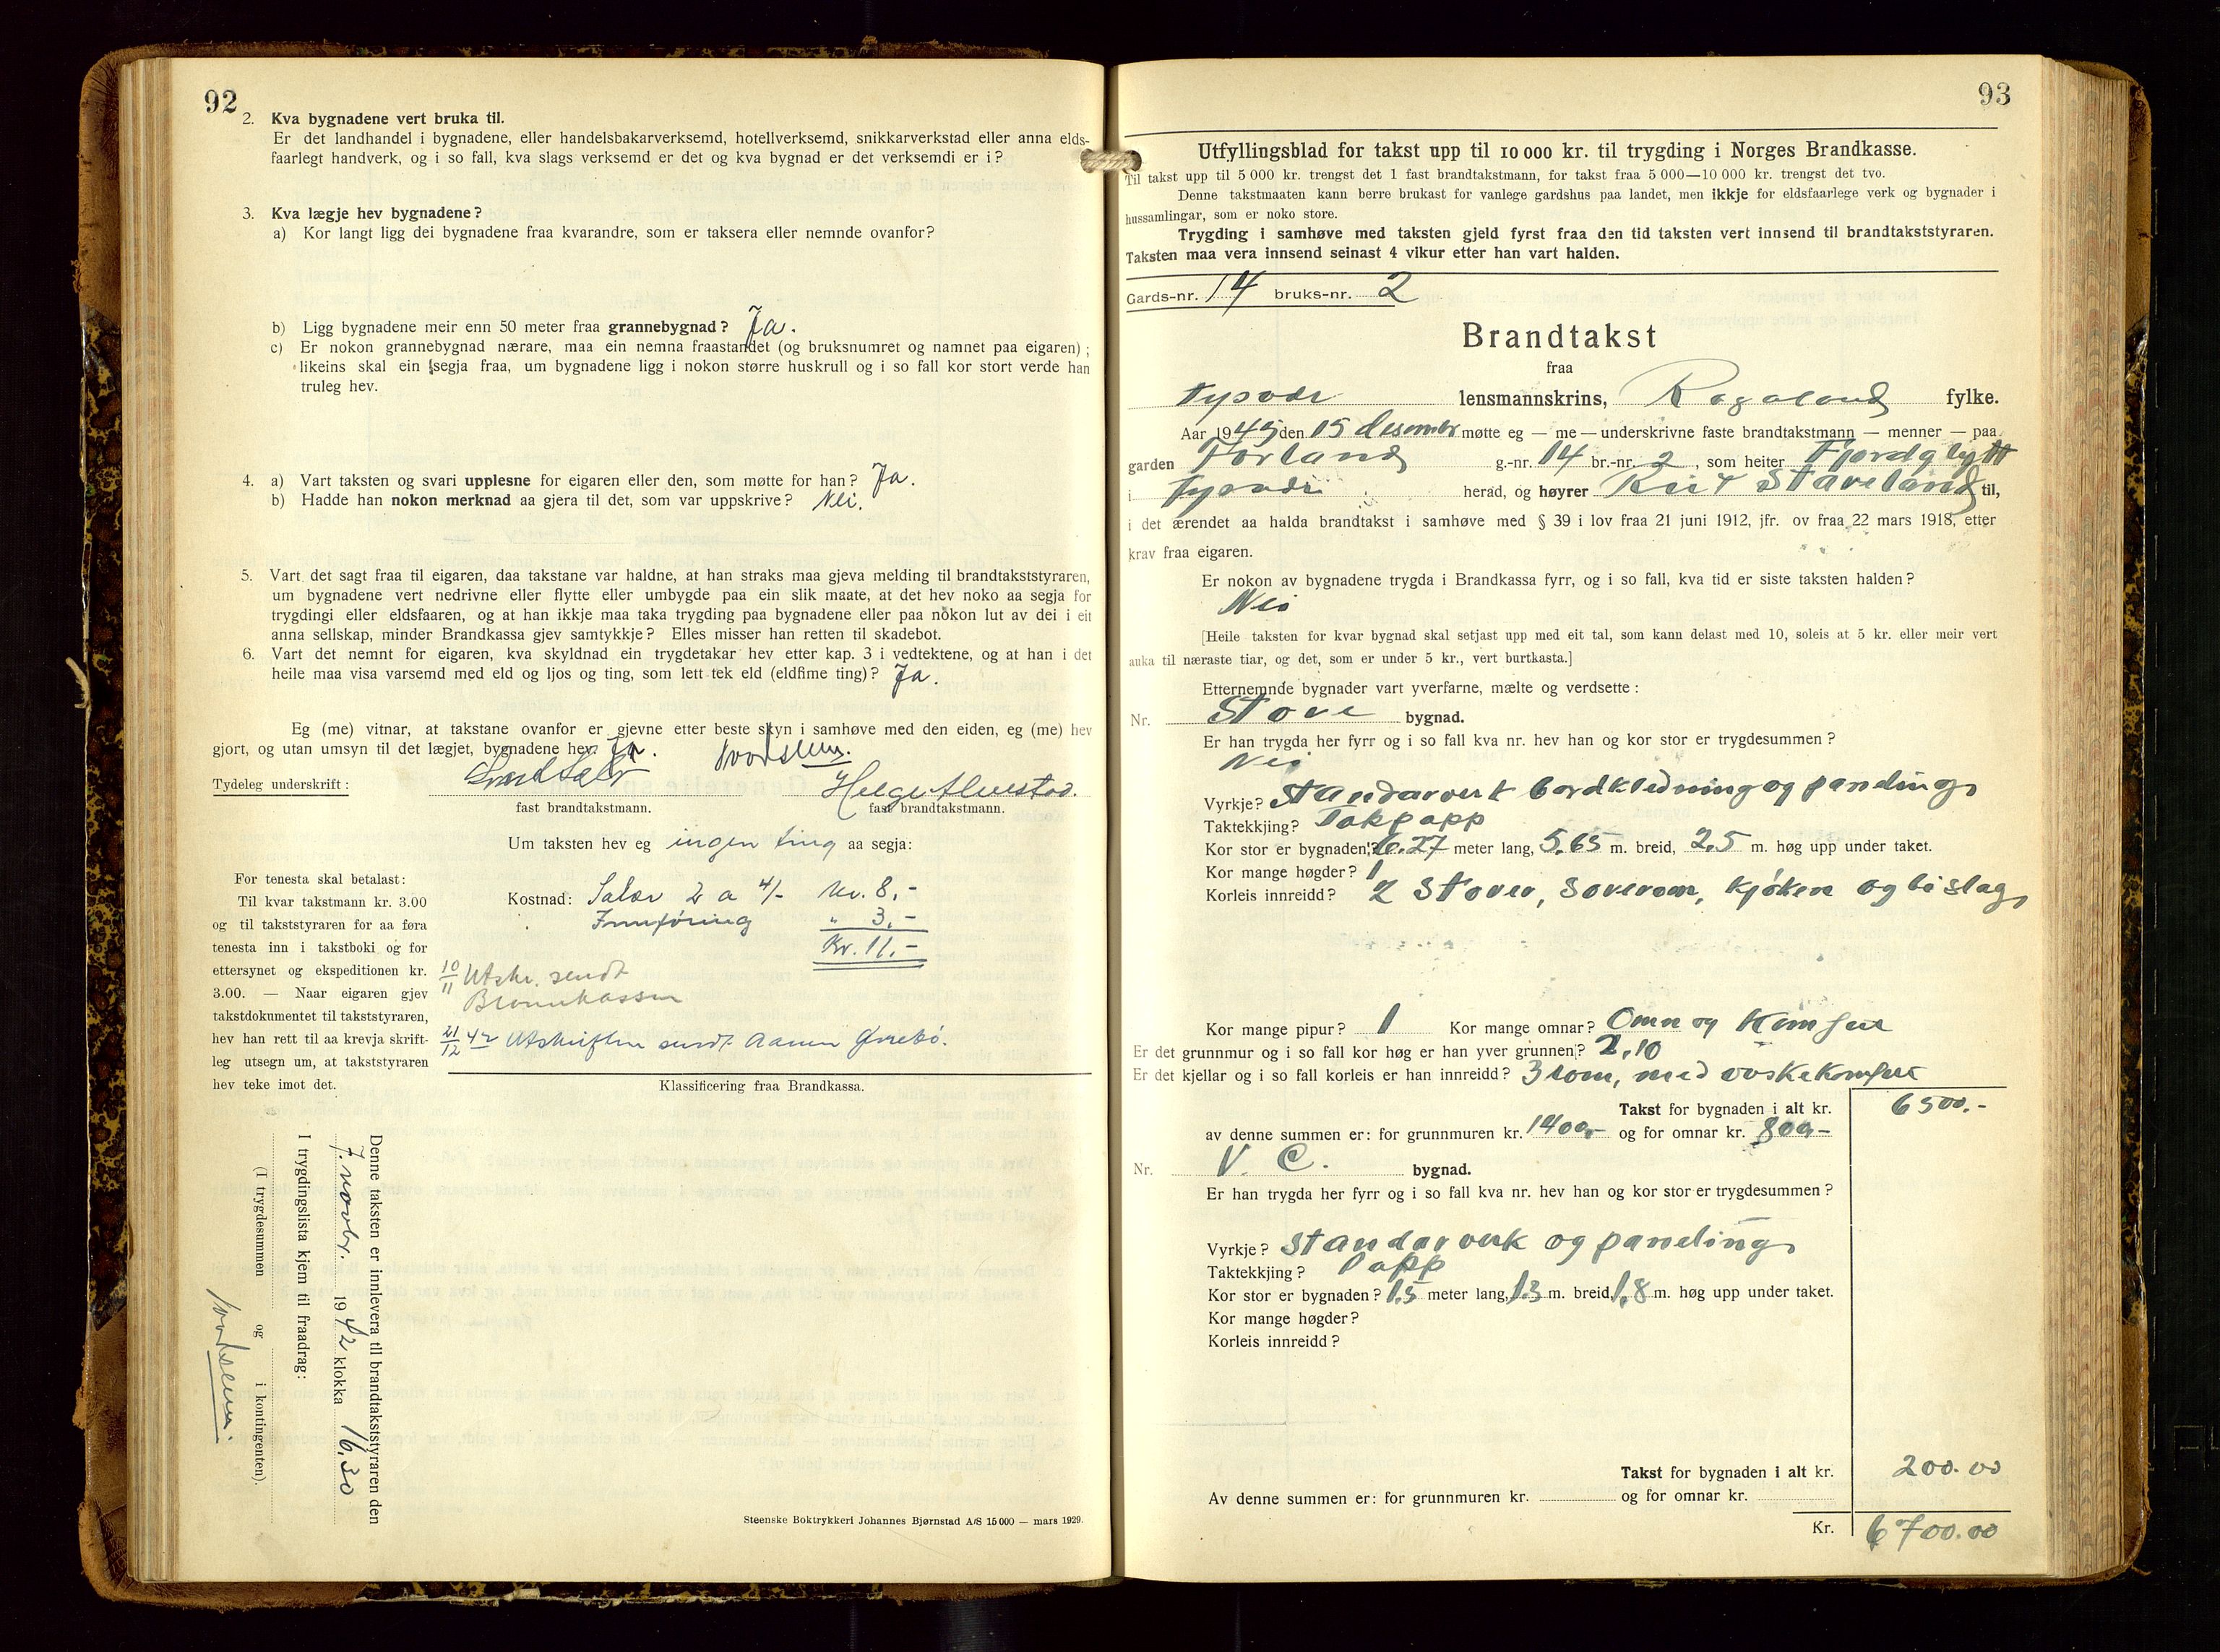 92
2. Kva bygnadene vert bruka til.
Er det landhandel i bygnadene, eller handelsbakarverksemd, hotellverksemd, snikkarverkstad eller anna elds-
faarlegt handverk, og i so fall, kva slags verksemd er det og kva bygnad er det verksemdi er i?
3. Kva lægje hev bygnadene?
a) Kor langt ligg dei bygnadene fraa kvarandre, som er taksera eller nemnde ovanfor?
b) Ligg bygnadene meir enn 50 meter fraa grannebygnad? Ja.
c) Er nokon grannebygnad nærare, maa ein nemna fraastandet (og bruksnumret og namnet paa eigaren);
likeins skal ein segja fraa, um bygnadene ligg i nokon større huskrull og i so fall kor stort verde han
truleg hev.
4. a) Vart taksten og svari upplesne for eigaren eller den, som møtte for han? Ja.
b) Hadde han nokon merknad aa gjera til det, som var uppskrive? Nei.
5. Vart det sagt fraa til eigaren, daa takstane var haldne, at han straks maa gjeva melding til brandtakststyraren,
um bygnadene vert nedrivne eller flytte eller umbygde paa ein slik maate, at det hev noko aa segja for
trygdingi eller eldsfaaren, og at han ikkje maa taka trygding paa bygnadene eller paa nokon lut av dei i eit
anna sellskap, minder Brandkassa gjev samtykkje? Elles misser han retten til skadebot.
6. Vart det nemnt for eigaren, kva skyldnad ein trygdetakar hev etter kap. 3 i vedtektene, og at han i det
heile maa visa varsemd med eld og ljos og ting, som lett tek eld (eldfime ting)? Ja.
Eg (me) vitnar, at takstane ovanfor er gjevne etter beste skyn i samhøve med den eiden, eg (me) hev
gjort, og utan umsyn til det lægjet, bygnadene hev. Ja.
Tydeleg underskrift:
fast brandtakstmann. fast brandtakstmann.
Um taksten hev eg ingen ting aa segja:
For tenesta skal betalast:
Til kvar takstmann kr. 3.00
og til takststyraren for aa føra
tenesta inn i takstboki og for
ettersynet og ekspeditionen kr.
3.00. — Naar eigaren gjev
takstdokumentet til takststyraren,
hev han rett til aa krevja skrift-
leg utsegn um, at takststyraren
hev teke imot det.
Kostnad: Salær 2 a 4/- kr. 8.-
Innføring " 3.-
Kr. 11.-
10/11 Utskr. sendt
Brannkassen
21/12 42 Utskriften sendt
Klassificering fraa Brandkassa.
Denne taksten er innlevera til brandtakststyraren den
7. novbr. 1942 klokka 16.30
I trygdingslista kjem til fraadrag:
(I trygdesummen og i kontingenten).
Steenske Boktrykkeri Johannes Bjørnstad A/S 15000 — mars 1929.
93
Utfyllingsblad for takst upp til 10 000 kr. til trygding i Norges Brandkasse.
Til takst upp til 5 000 kr. trengst det 1 fast brandtakstmann, for takst fraa 5 000—10 000 kr. trengst det tvo.
Denne takstmaaten kann berre brukast for vanlege gardshus paa landet, men ikkje for eldsfaarlege verk og bygnader i
hussamlingar, som er noko store.
Trygding i samhøve med taksten gjeld fyrst fraa den tid taksten vert innsend til brandtakststyraren.
Taksten maa vera innsend seinast 4 vikur etter han vart halden.
Gards-nr. 14 bruks-nr. 2
Brandtakst
fraa
Tysvær lensmannskrins, Rogaland fylke.
Aar 19 den 15 desember møtte eg — me — underskrivne faste brandtakstmann — menner — paa
garden Førland g.-nr. 14 br.-nr. 2, som heiter Fjordglytt
i Tysvær herad, og høyrer Knut Staveland til,
i det ærendet aa halda brandtakst i samhøve med § 39 i lov fraa 21 juni 1912, jfr. ov fraa 22 mars 1918, etter
krav fraa eigaren.
Er nokon av bygnadene trygda i Brandkassa fyrr, og i so fall, kva tid er siste taksten halden?
Nei
[Heile taksten for kvar bygnad skal setjast upp med eit tal, som kann delast med 10, soleis at 5 kr. eller meir vert
auka til næraste tiar, og det, som er under 5 kr., vert burtkasta.]
Etternemnde bygnader vart yverfarne, mælte og verdsette:
Nr. Stove bygnad.
Er han trygda her fyrr og i so fall kva nr. hev han og kor stor er trygdesummen?
Nei
Vyrkje? Standarverk bordkledning og paneling
Taktekkjing? Takpapp
Kor stor er bygnaden? 6.27 meter lang, 5,65 m. breid, 2,5 m. høg upp under taket.
Kor mange høgder? 1
Korleis innreidd? 2 Stover, soverom, kjøken og bislag
Kor mange pipur? 1 Kor mange omnar? Omn og Komfur
Er det grunnmur og i so fall kor høg er han yver grunnen? 2,10
Er det kjellar og i so fall korleis er han innreidd? 3 rom, med vaskekomfur
Takst for bygnaden i alt kr. 6500.-
av denne summen er: for grunnmuren kr. 1400,- og for omnar kr. 800,-
Nr. V. C. bygnad.
Er han trygda her fyrr og i so fall kva nr. hev han og kor stor er trygdesummen?
Vyrkje? Standarverk og paneling
Taktekkjing? Papp
Kor stor er bygnaden? 1,5 meter lang, 1,3 m. breid, 1,8 m. høg upp under taket.
Kor mange høgder?
Korleis innreidd?
Takst for bygnaden i alt kr. 200.00
Av denne summen er: for grunnmuren kr. og for omnar kr.
Kr. 6700.00